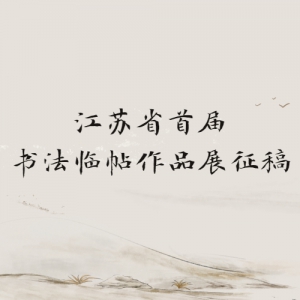 江苏省首届
书法临帖作品展征稿